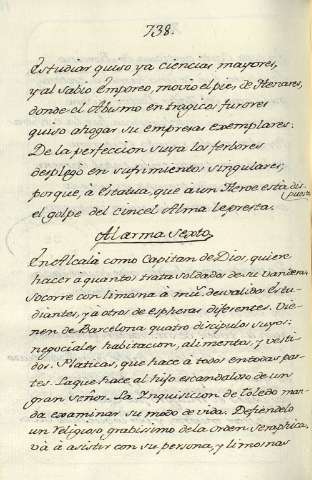 738.
Estudiar quiso ya ciencias mayores,
y al sabio Emporeo, movio el pies, de Henares,
donde el Abismo en tragicos furores
quiso ahogar su empresas exemplares.
De la perfeccion suya los ferbores
desplegò en sufrimientos singulares;
porque, à Estatua, que à un Heroe està dispuesta
el golpe del cincel Alma le presta.
Al arma Sexto,
En Alcalà como Capitan de Dios, quiere
hacer à quantos trata Soldados de su vandera
Socorre con limosna à mil desvalidos Estu-
diantes, y a otros de espheras diferentes. Vie-
nen de Barcelona quatro discipulos suyos:
negociales habitacion, alimentos, y vesti-
dos. Platicas, que hace à todos en todas par-
tes. La que hace al hijo escandaloso de un
gran Señor. La Inquisicion de Toledo man-
da examinar su modo de vida. Defiendelo
un religioso grabissimo de la orden Seraphica,
và à asistir con su persona, y limosnas